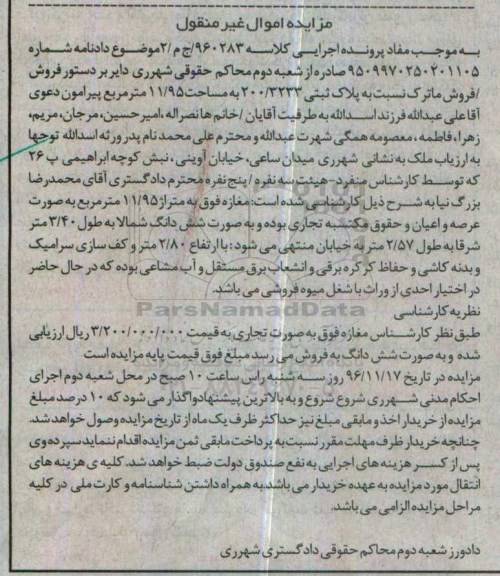 مزایده اموال غیر منقول
به موجب مفاد پرونده اجرایی کلاسه ۹۶۰۲۸۳/ج م /۲موضوع دادنامه شماره
۹۵۰۹۹۷۰۲۵۰۲۰۱۱۰۵ صادره از شعبه دوم محاکم حقوقی شهرری دایر بر دستور فروش
/فروش ماترک نسبت به پلاک ثبتی ۲۰۰/۳۲۳۳ به مساحت۱۱/۹۵ متر مربع پیرامون دعوی
آقا علی عبدالله فرزند اسدالله به طرفیت آقایان /خانم ها نصراله ،امیرحسین، مرجان، مریم،
زهرا، فاطمه ، معصومه همگی شهرت عبدالله و محترم علی محمد نام پدر ورثه اسدالله توجها
به ارزیاب ملک به نشانی شهرری میدان ساعی، خیابان آوینی، نبش کوچه ابراهیمی پ ۲۶
که توسط کارشناس منفرد-هیئت سه نفره / پنج نفره محترم دادگستری آقای محمدرضا
بزرگ نیا به شرح ذیل کارشناسی شده است: مغازه فوق به متراژ ۱۱/۹۵ متر مربع به صورت
عرصه و اعیان و حقوق مکتسبه تجاری بوده و به صورت شش دانگ شمالا به طول ۳/۴۰ متر
شرقا به طول ۲/۵۷ متر به خیابان منتهی می شود : با ارتفاع ۲/۸۰ متر و کف سازی سرامیک
و بدنه کاشی و حفاظ کرکره برقی و انشعاب برق مستقل و آب مشاعی بوده که در حال حاضر
در اختیار احدی از وراث با شغل میوه فروشی می باشد.
نظریه کارشناسی
طبق نظر کارشناس مغازه فوق به صورت تجاری به قیمت ۳/۲۰۰/۰۰۰/۰۰۰ ریال ارزیابی
شده و به صورت شش دانگ به فروش می رسد مبلغ فوق قیمت پایه مزایده است
مزایده در تاریخ ۹۶/۱۱/۱۷ روز سه شنبه راس ساعت ۱۰ صبح در محل شعبه دوم اجرای
احکام مدنی شهرری شروع شروع و به بالاترین پیشنهاد واگذار می شود که ۱۰ درصد مبلغ
مزایده از خریدار اخذ و مابقی مبلغ نیز حداکثر ظرف یک ماه از تاریخ مزایده وصول خواهد شد.
چنانچه خریدار ظرف مهلت مقرر نسبت به پرداخت مابقی ثمن مزایده اقدام ننماید سپرده وی
پس از کسر هزینه های اجرایی به نفع صندوق دولت ضبط خواهد شد. کلیه ی هزینه های
انتقال مورد مزایده به عهده خریدار می باشد.به همراه داشتن شناسنامه و کارت ملی در کلیه
مراحل مزایده الزامی می باشد.
دادورز شعبه دوم محاکم حقوقی دادگستری شهرری
ParsNamadData